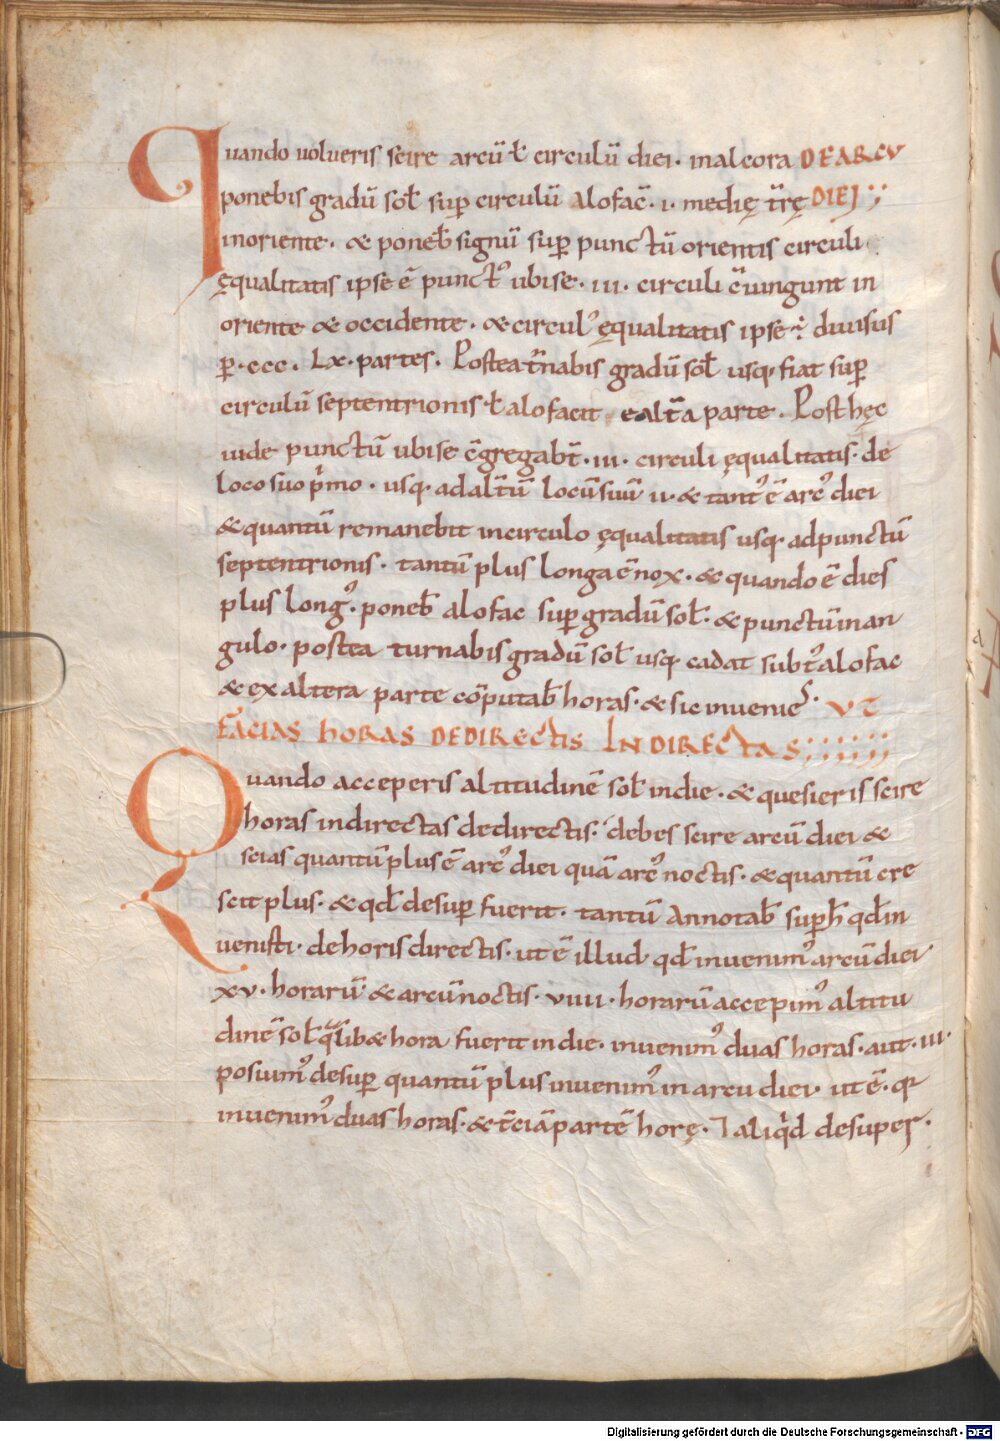 Quando uolueris scire arcū ł circulū diei. inalcora DE ARCV
ponebis gradū sol̄ sup̄ circulū Alofac̄. i. medię tr̄ę DIEI
inoriente. & poneb̄ signū sup̄ punctū orientis circuli
ęqualitatis ipse ē punct᾿ ubi se. iii. circuli c̄iungunt in
oriente & occidente. & circul᾿ ęqualitatis ipse ÷ diuisus
p̄. ccc. Lx. partes. Postea t̄nabis gradū sol̄ usq; fiat sup̄
circulū septentrionis ł alofacit ealt̄a parte. Post hęc
uide punctū ubi se c̄gregabt̄. iii. circuli ęqualitatis. de
loco suo p̄mo. usq; ad alt̄ū locū suū ii. & tant᾿ ē arc᾿ diei
& quantū remanebit incirculo ęqualitatis usq; adpunctū
septentrionis. tantū plus longa ē nox. & quando ē dies
plus long᾿. poneb̄ alofac sup̄ gradū sol̄. & punctū in an
gulo. postea turnabis gradū sol̄ usq; cadat subt᾿ alofac
& ex altera parte cōputab̄ horas. & sic inuenies. VT
FACIAS HORAS DEDIRECTIS INDIRECTAS
Quando acceperis altitudinē sol̄ indie. & quesieris scire
horas indirectas dedirectis. debes scire arcū diei &
scias quantū plus ē arc᾿ diei quā arc᾿ noctis. & quantū cre
scit plus. & qd̄ desup̄ fuerit. tantū Annotab̄ sup̄ h̄ qd̄ in
uenisti. dehoris directis. ut ē illud qd̄ inuenim᾿ arcū diei
xv. horarū & arcū noctis. viiii. horarū accepim᾿ altitu
dinē sol̄ q̄lib& hora fuerit indie. inuenim᾿ duas horas. aut. iii.
posuim᾿ desup̄ quantū plus inuenim᾿ in arcu diei. ut ē. qr
inuenim᾿ duas horas. & t̄ciā partē horę. ⁊ aliq̄d desuper.
Digitalisierung gefördert durch die Deutsche Forschungsgemeinschaft - DFG